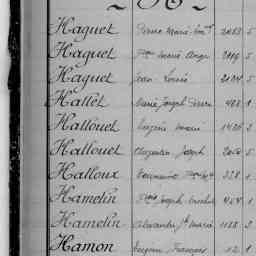 H
Haquet Pierre Marie 2083 5
Haquet Marie Ange 2109 5
Haquet Jean Louis 2104 5
Hallet Marie Joseph Pierre 488 1
Hallouet Eugène Marie 1426 3
Hallouet Augustin Joseph 2050 5
Halloux 328 1
Hamelin Joseph 454 1
Hamelin Alexandre Marie 1188 3
Hamon Eugène François 12 1